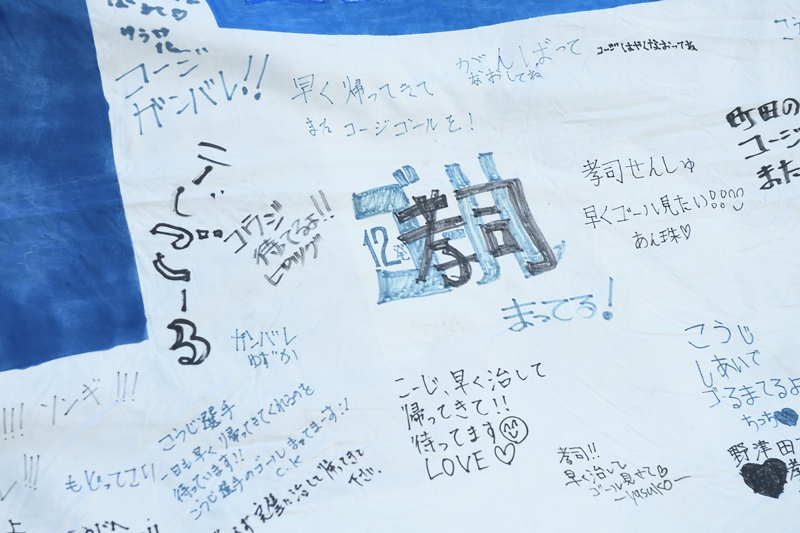 コージ
ガンバレ!!
早く帰ってきて
また コージゴールを!
がんばって
なおしてね
コージはやくなおってね
町田の
コージ
また
こーじ
ごーる
コウジ
待てるよ!!
ゴール
12
孝司
まってる!
孝司せんしゅ
早くゴール見たい!!
あん珠♡
ガンバレ
ゆずか
こーじ、早く治して
帰ってきて!!
待ってます
LOVE♡
こうじ
しあいで
ゴールまてるよ
ちっち
ソンギ!!!
もどってこい
こうじ選手
一日も早く帰ってきてくれるのを
待っています!!
こうじ選手のゴールまってまーす!!
C.K
完璧に治して帰ってきて
下さい
孝司!!
早く治して
ゴール見せて♡
ーyasukoー
野津田